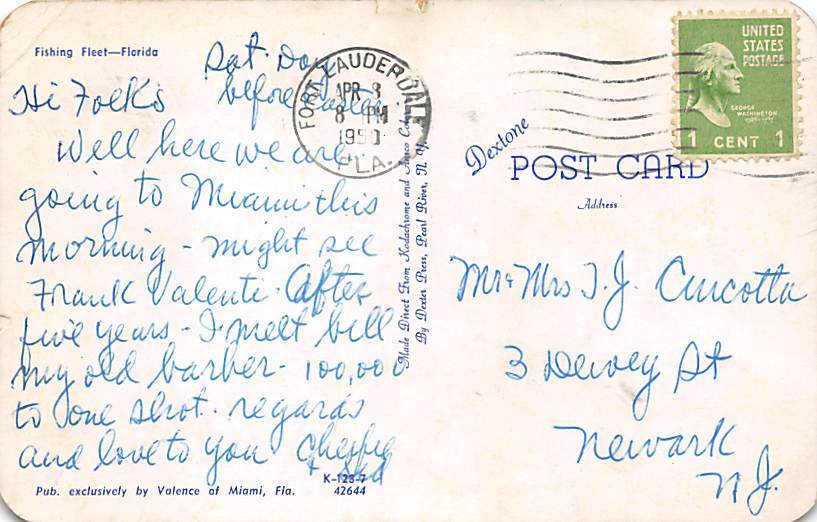 Fishing Fleet—Florida
Sat. Day
before Easter.
Hi Folks
Well here we are
going to Miami this
morning - might see
Frank Valenti. After
five years - I meet bill
my old barber - 100,000
to one shot. regards
and love to you
+
K-128-7
Pub. exclusively by Valence of Miami, Fla. 42644
FORT LAUDERDALE
APR 8
8 PM
1950
FLA.
Made Direct From Kodachrome and Ansco Color
By Dexter Press, Pearl River, N. Y.
UNITED
STATES
POSTAGE
GEORGE
WASHINGTON
1 CENT 1
Dextone
POST CARD
Address
Mr + Mrs T. J. Cucotta
3 Dewey St
Newark
N J.